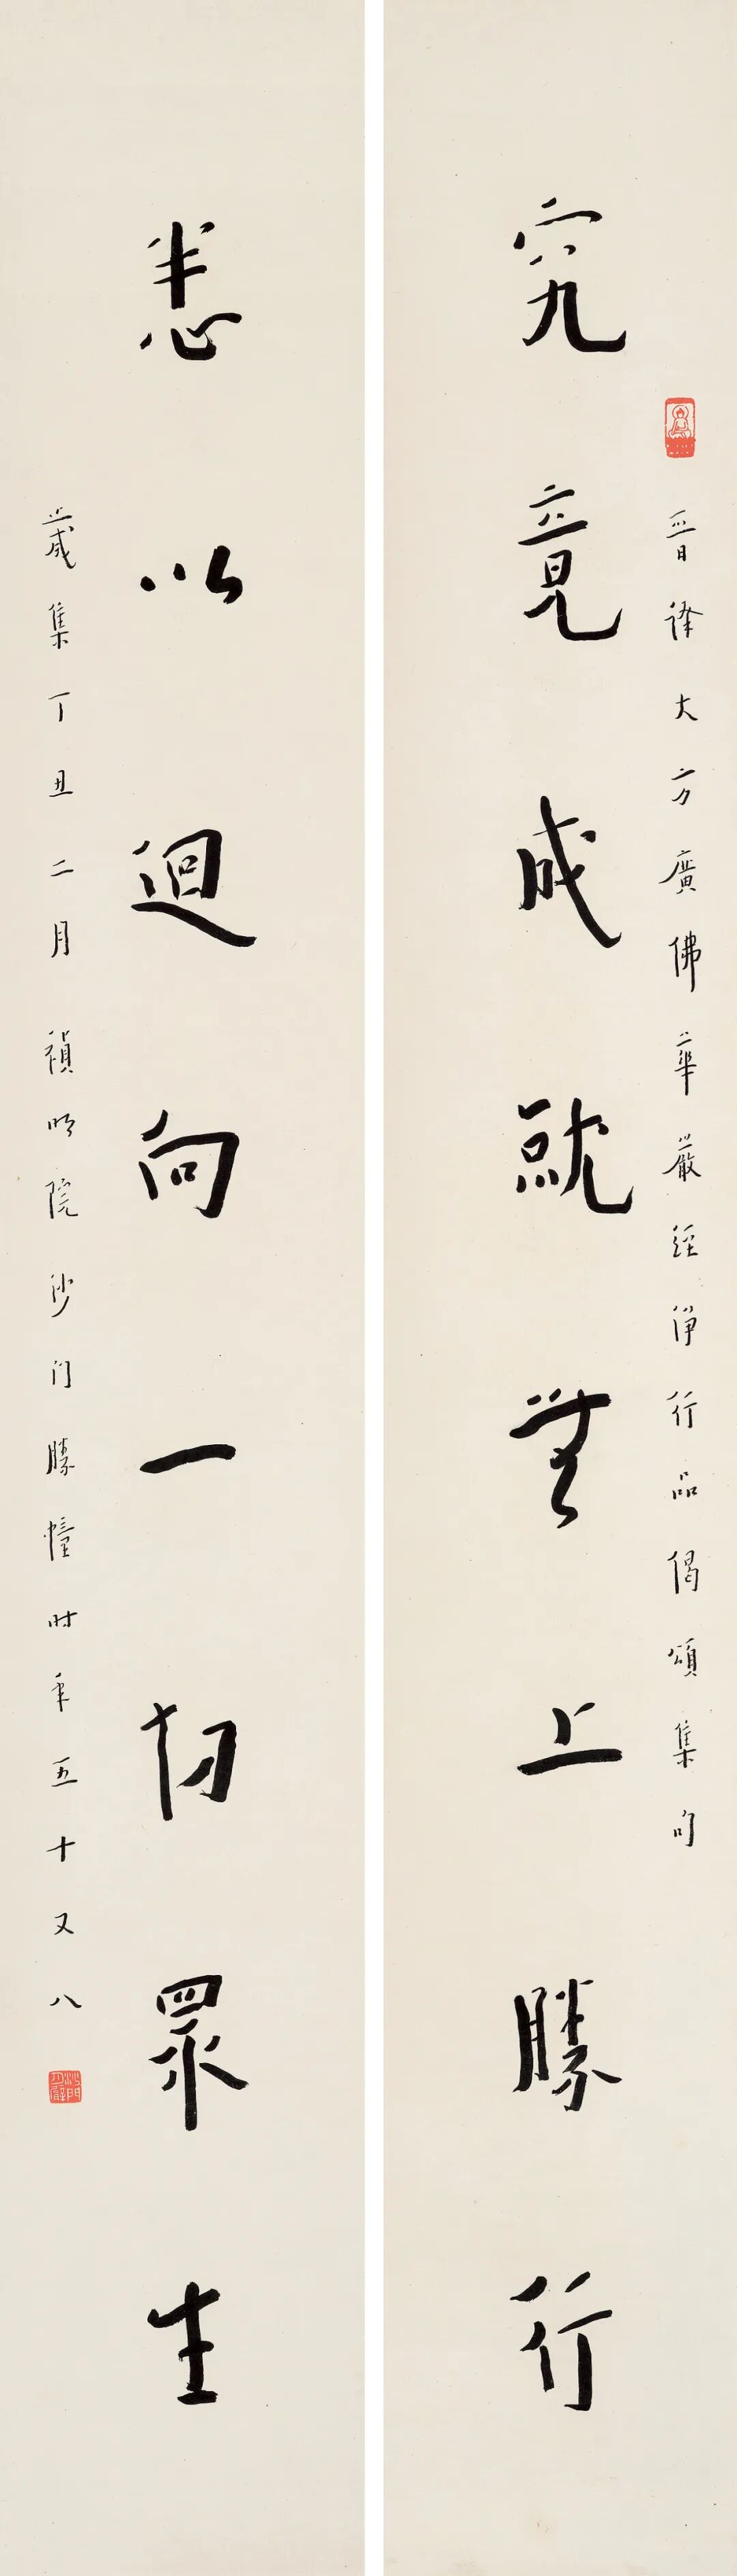 晉譯大方廣佛華嚴經淨行品偈頌集句
究竟成就無上勝行
悉以迴向一切眾生
歲集丁丑二月禎明院沙門勝幢時年五十又八
沙門月臂